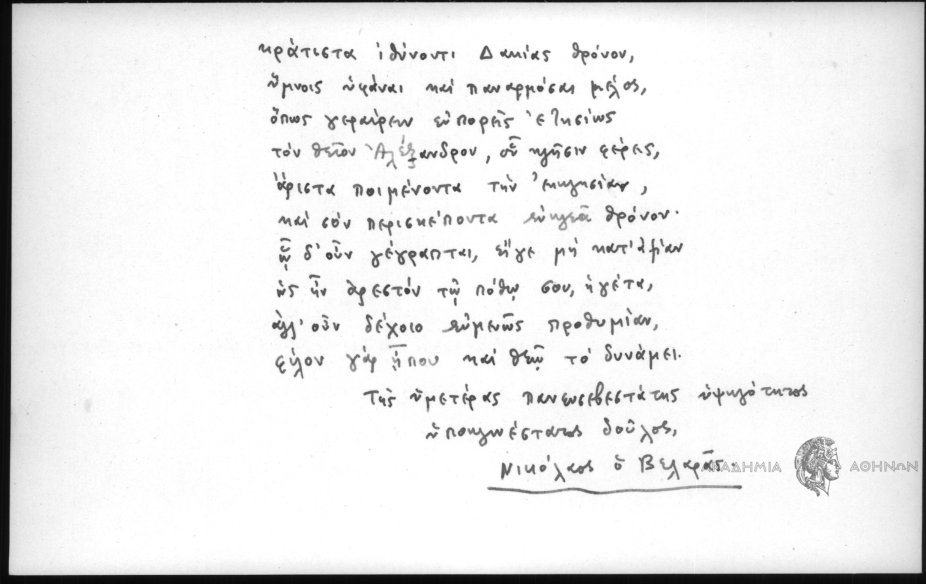 κράτιστα ἰθύνοντι Δακίας θρόνον,
ὕμνοις ὑφάναι καὶ παναρμόσαι μέλος,
ὅπως γεραίρειν εὐπορεῖς ἐτησίως
τὸν θεῖον Ἀλέξανδρον, οὗ κλῆσιν φέρεις,
ἄριστα ποιμένοντα τὴν ἐκκλησίαν,
καὶ σὸν περισκέποντα εὐκλεᾶ θρόνον.
εὖ δ' οὖν γέγραπται, εἴγε μὴ κατ' ἀξίαν
ὡς ἦν ἀρεστόν τῷ πόθῳ σου, ἡγέτα,
ἀλλ' οὖν δέχοιο εὐμενῶς προθυμίαν,
φίλον γάρ ἤπου καὶ θεῷ τὸ δυνάμει.
Τῆς ὑμετέρας πανευσεβεστάτης ὑψηλότητος
ὑποκλινέστατος δοῦλος,
Νικόλαος ὁ Βελαρᾶς.
ΑΚΑΔΗΜΙΑ ΑΘΗΝΩΝ